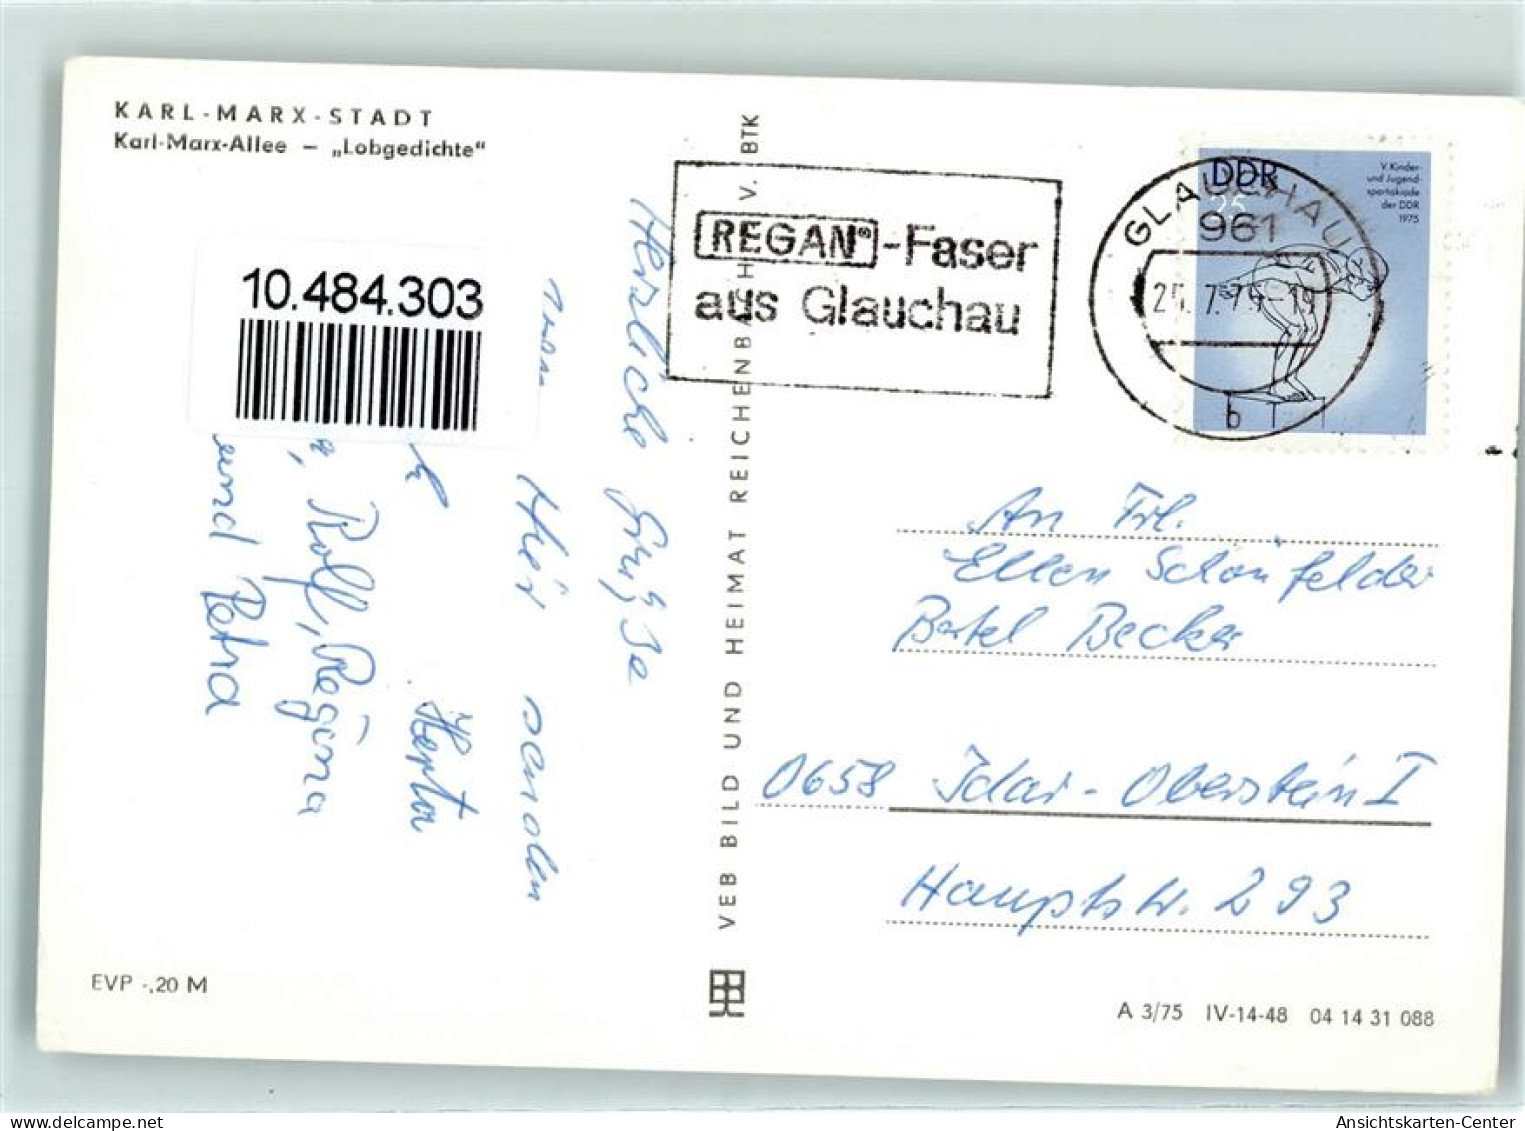 KARL-MARX-STADT
Karl-Marx-Allee – „Lobgedichte“
10.484.303
Herzliche Grüße
von Hier senden
Herta
Rolf, Regina
und Petra
EVP -,20 M
VEB BILD UND HEIMAT REICHENBACH I. V. BTK
REGAN®-Faser
aus Glauchau
GLAUCHAU
961
b
DDR
25
V. Kinder
und Jugend-
spartakiade
der DDR
1975
An Frl.
Ellen Schönfelder
Bertel Becker
0658 Idar-Oberstein I
Hauptstr. 293
A 3/75 IV-14-48 04 14 31 088
Ansichtskarten-Center